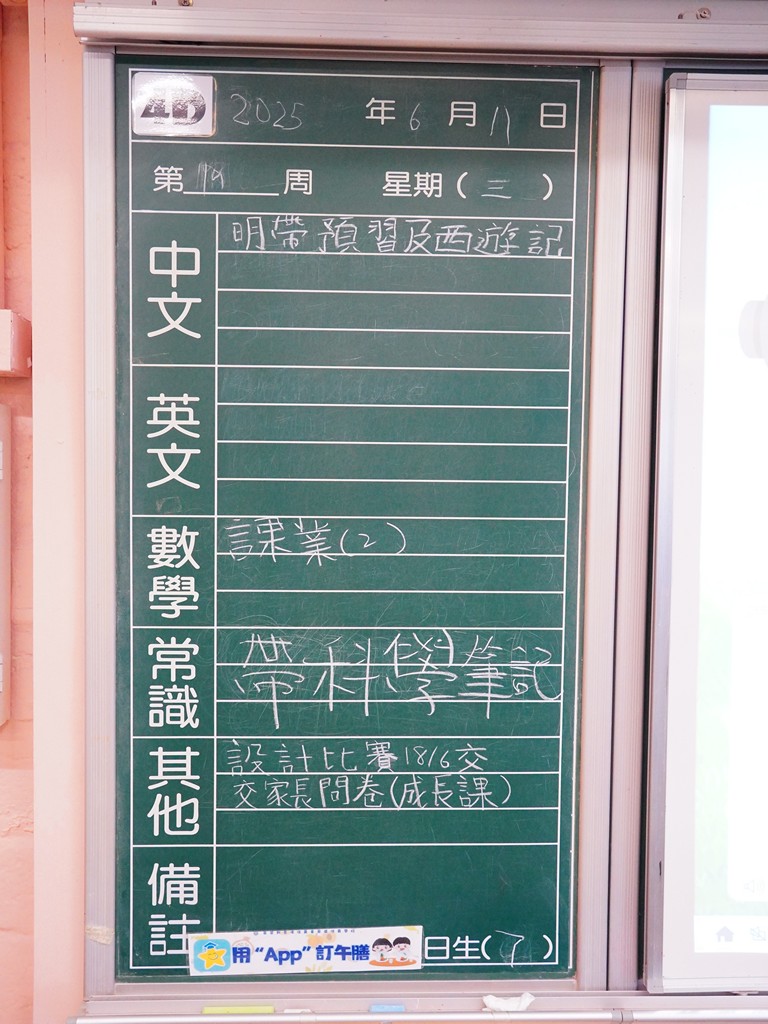 4D 2025 年 6 月 11 日
第 周 星期 ( 三 )
中文 明帶預習及西遊記
英文
數學 課業(2)
常識 帶科學筆記
其他 設計比賽18/6交
交家長問卷(成長課)
備註
用“App”訂午膳 日生( 7 )